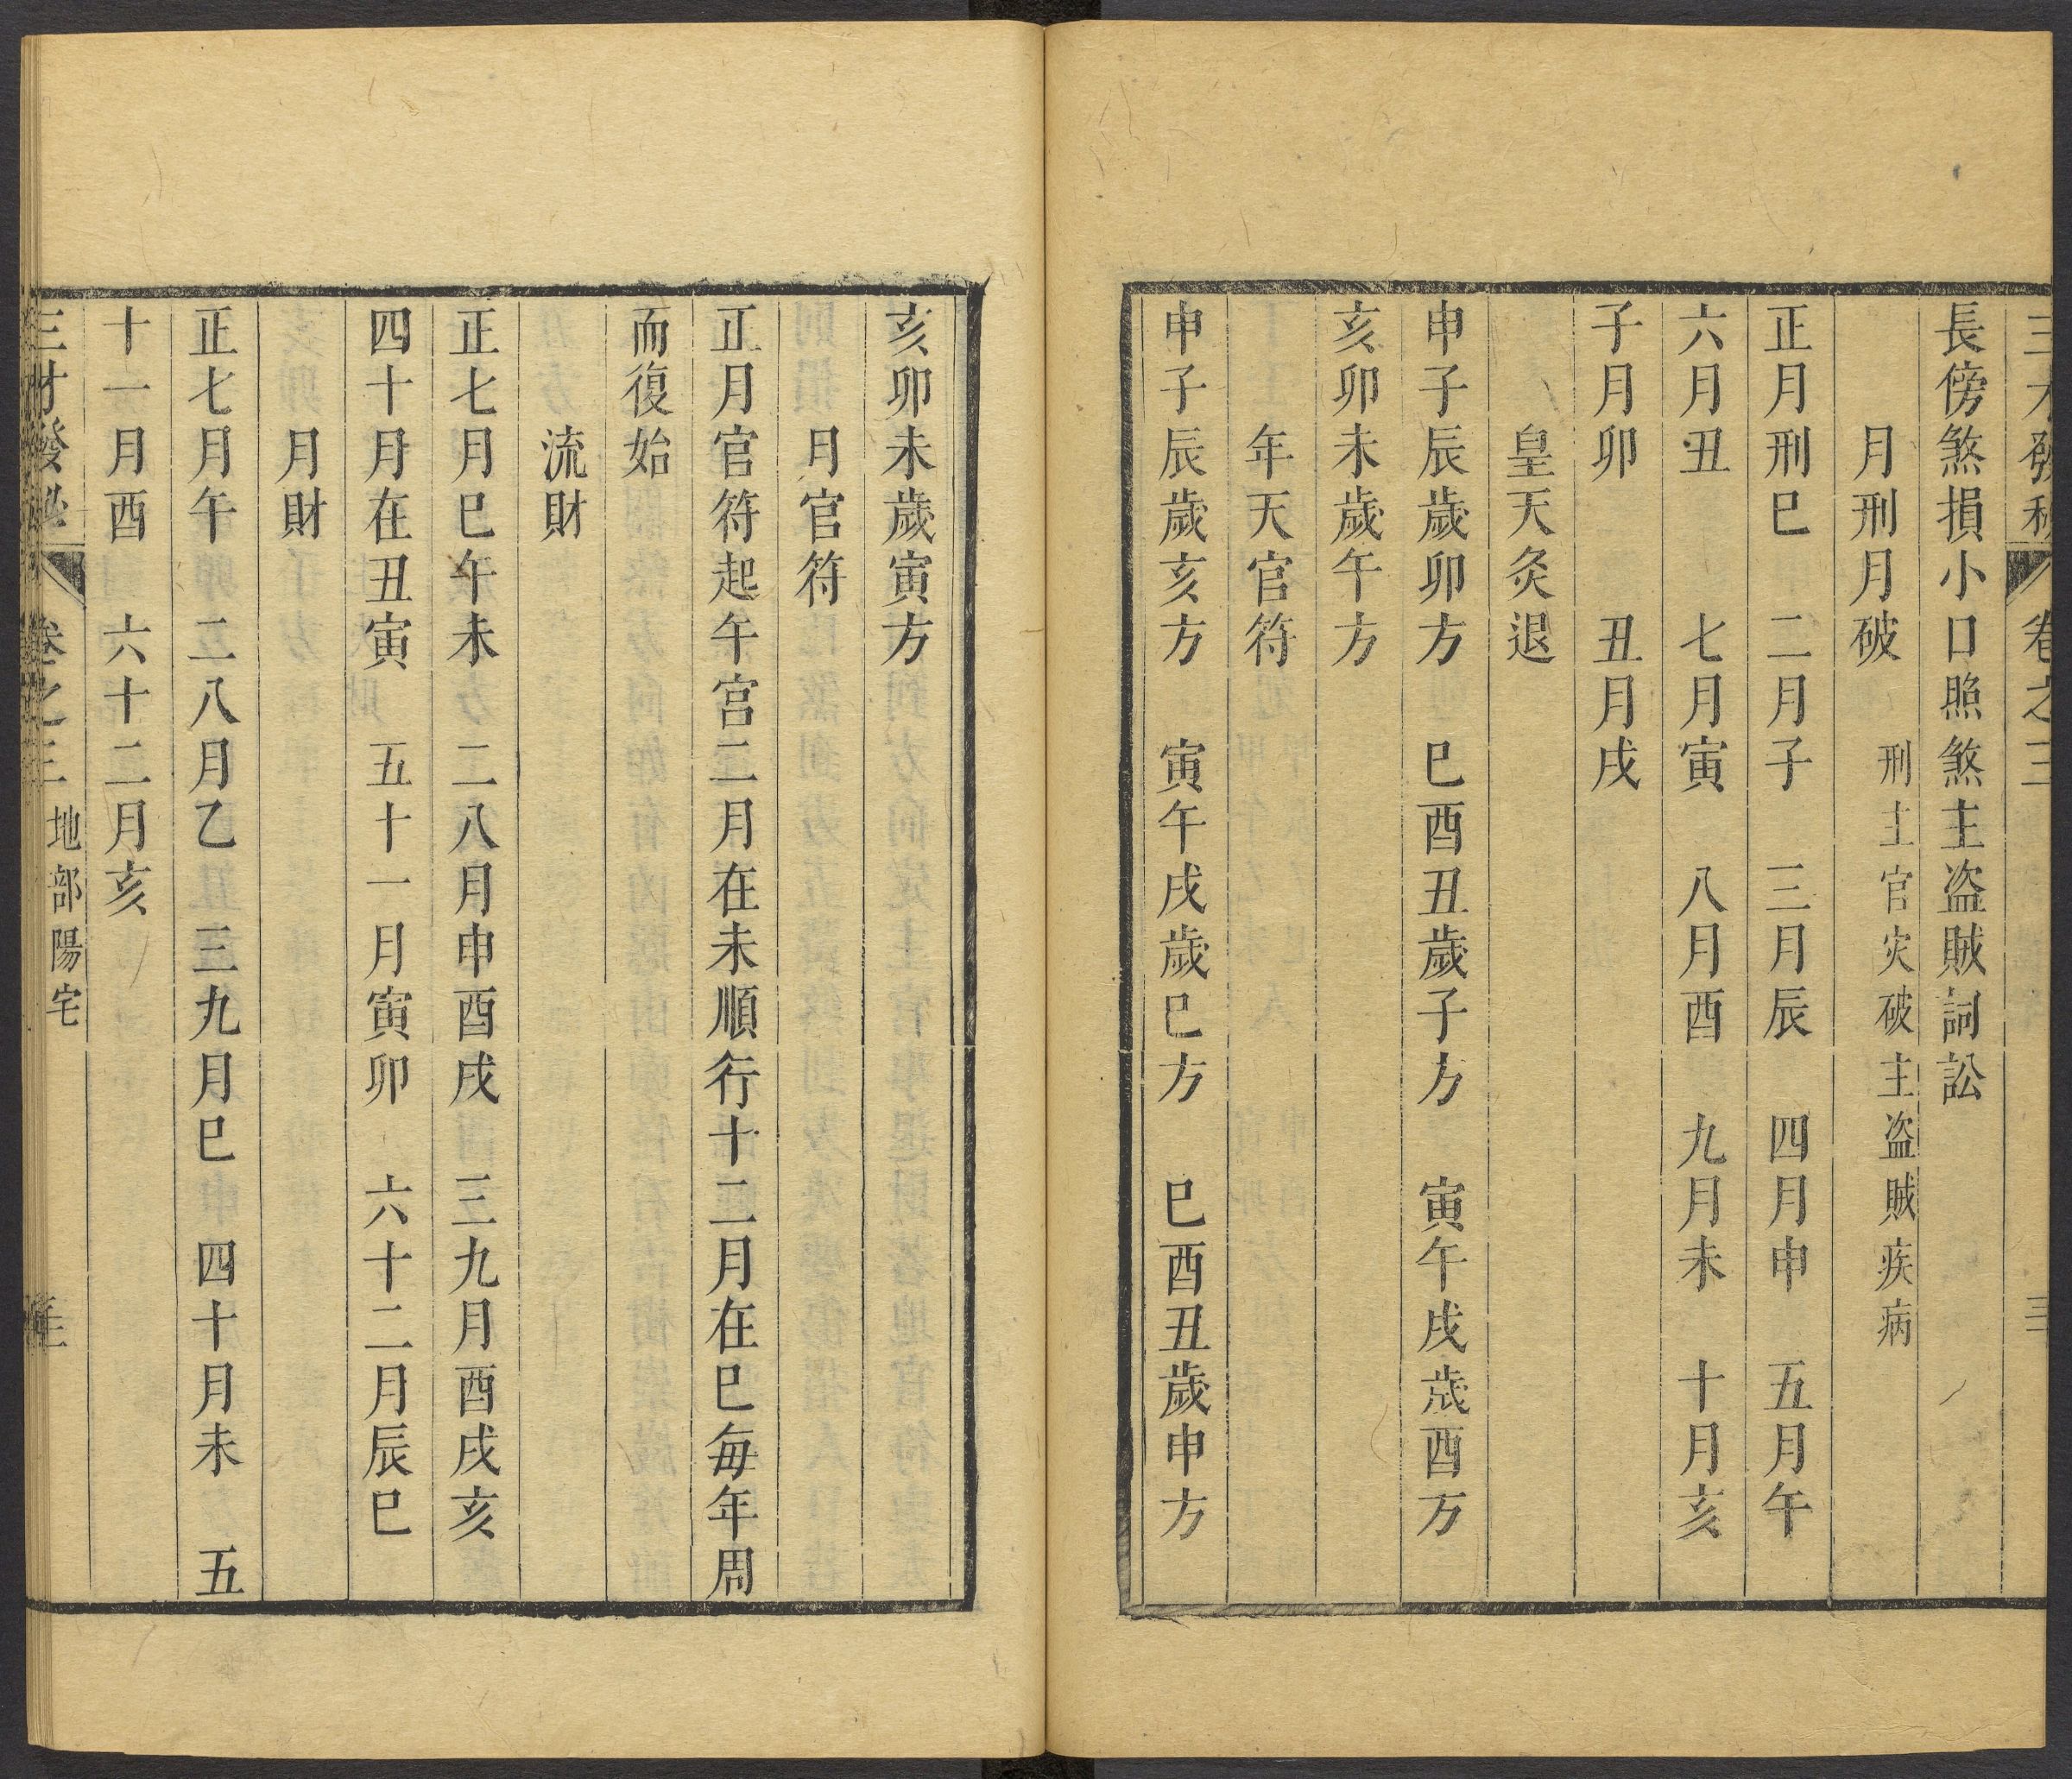 三才發秘 卷之三
長傍煞損小口照煞主盗賊詞訟
月刑月破 刑主官灾破主盗賊疾病
正月刑巳 二月子 三月辰 四月申 五月午
六月丑 七月寅 八月酉 九月未 十月亥
子月卯 丑月戌
皇天灸退
申子辰歲卯方 巳酉丑歲子方 寅午戌歲酉方
亥卯未歲午方
年天官符
申子辰歲亥方 寅午戌歲巳方 巳酉丑歲申方
亥卯未歲寅方
月官符
正月官符起午宫二月在未順行十二月在巳每年周
而復始
流財
正七月巳午未方 二八月申酉戌 三九月酉戌亥
四十月在丑寅 五十一月寅卯 六十二月辰巳
月財
正七月午 二八月乙 三九月巳 四十月未 五
十一月酉 六十二月亥
三才發秘 卷之三 地部陽宅